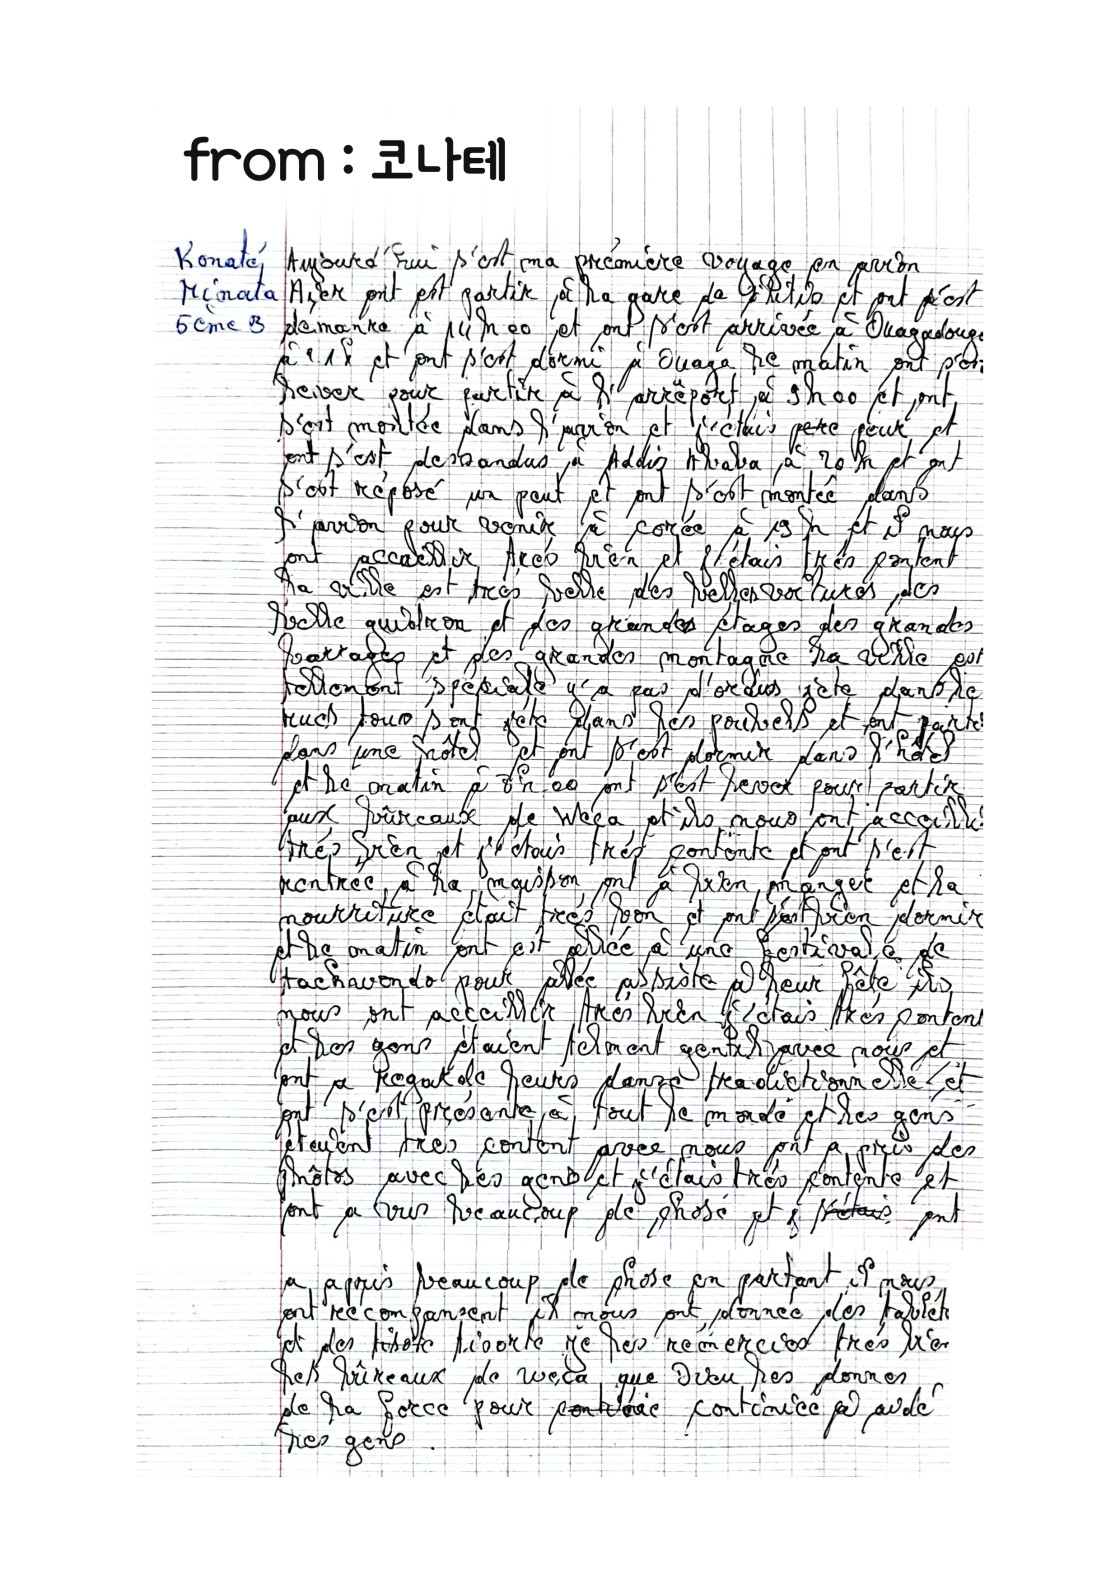 from : 코나테
Konaté, Aujourd'hui s'est ma prémière voyage en avion
Minata Hier ont est partir à la gare de et ont s'est
5ème B demarre à 14h00 et ont s'est arrivée à Ouagadougo
à 18 et ont s'est dormi à Ouaga le matin ont s'est
lever pour partir à l'arréport à 9h00 et ont
s'est montée dans l'avion et j'étais peur et
ont s'est dessandus à Addis Ababa à 20h et ont
s'est réposé un peut et ont s'est montée dans
l'avion pour venir à corée à 19h et il nous
ont accaillir trés bien et j'étais trés content
la ville est trés belle des belles voitures des
belle guidron et des grandes étages des grandes
barrages et des grandes montagne la ville est
tellement spéciale y'a pas d'ordus jété dans le
rues tous sont jété dans les pouvels et ont parti
dans une hôtel et ont s'est dormir dans l'hôtel
et le matin à 8h00 ont s'est lever pour partir
aux bûreaux de Weca et ils nous ont accailli
trés bien et j'étais trés contente et ont s'est
rentrée à la maison ont à bien manger et la
nourriture était trés bon et ont s'est bien dormir
et le matin ont est allée à une festivale de
tachavondo pour allée assisté à leur fête ils
nous ont accaillir trés bien j'étais trés content
et les gens étaient telment gentil avec nous et
ont a regardé leurs danse traditionnelle et
ont s'est présante à tout le monde et les gens
étaient tres content avec nous ont a pris des
phôtos avec les gens et j'étais trés contente et
ont a vus beaucoup de chose et j ont
a appris beaucoup de chose en partant il nous
ont recompansent il nous ont donnée des tablet
et des je les rémercies trés bien
les bûreaux de weca que Dieu les donnes
de la force pour continuée à aidé
les gens .